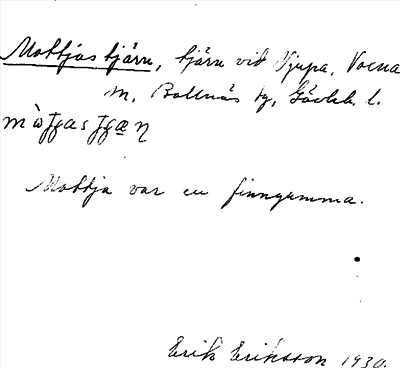 Mattjas tjärn, tjärn vid Njupa, Voxna
m, Bollnäs tg, Gävleb. l.
Mattja var en finngumma.
Erik Eriksson 1930.